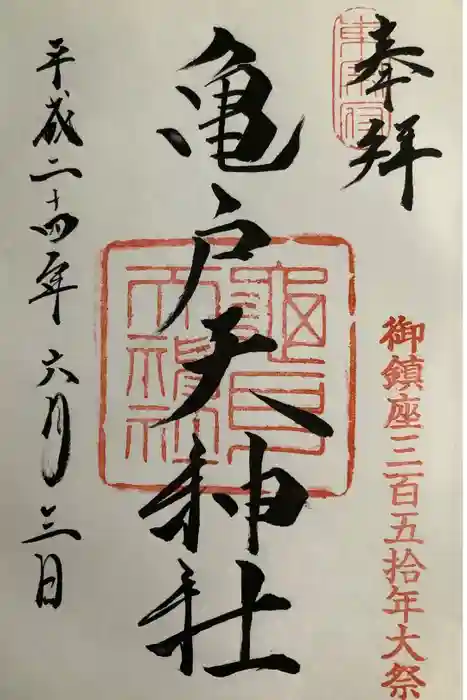 奉拝
東宰府
御鎮座三百五拾年大祭
亀戸天神社
亀戸天神社
平成二十四年六月三日